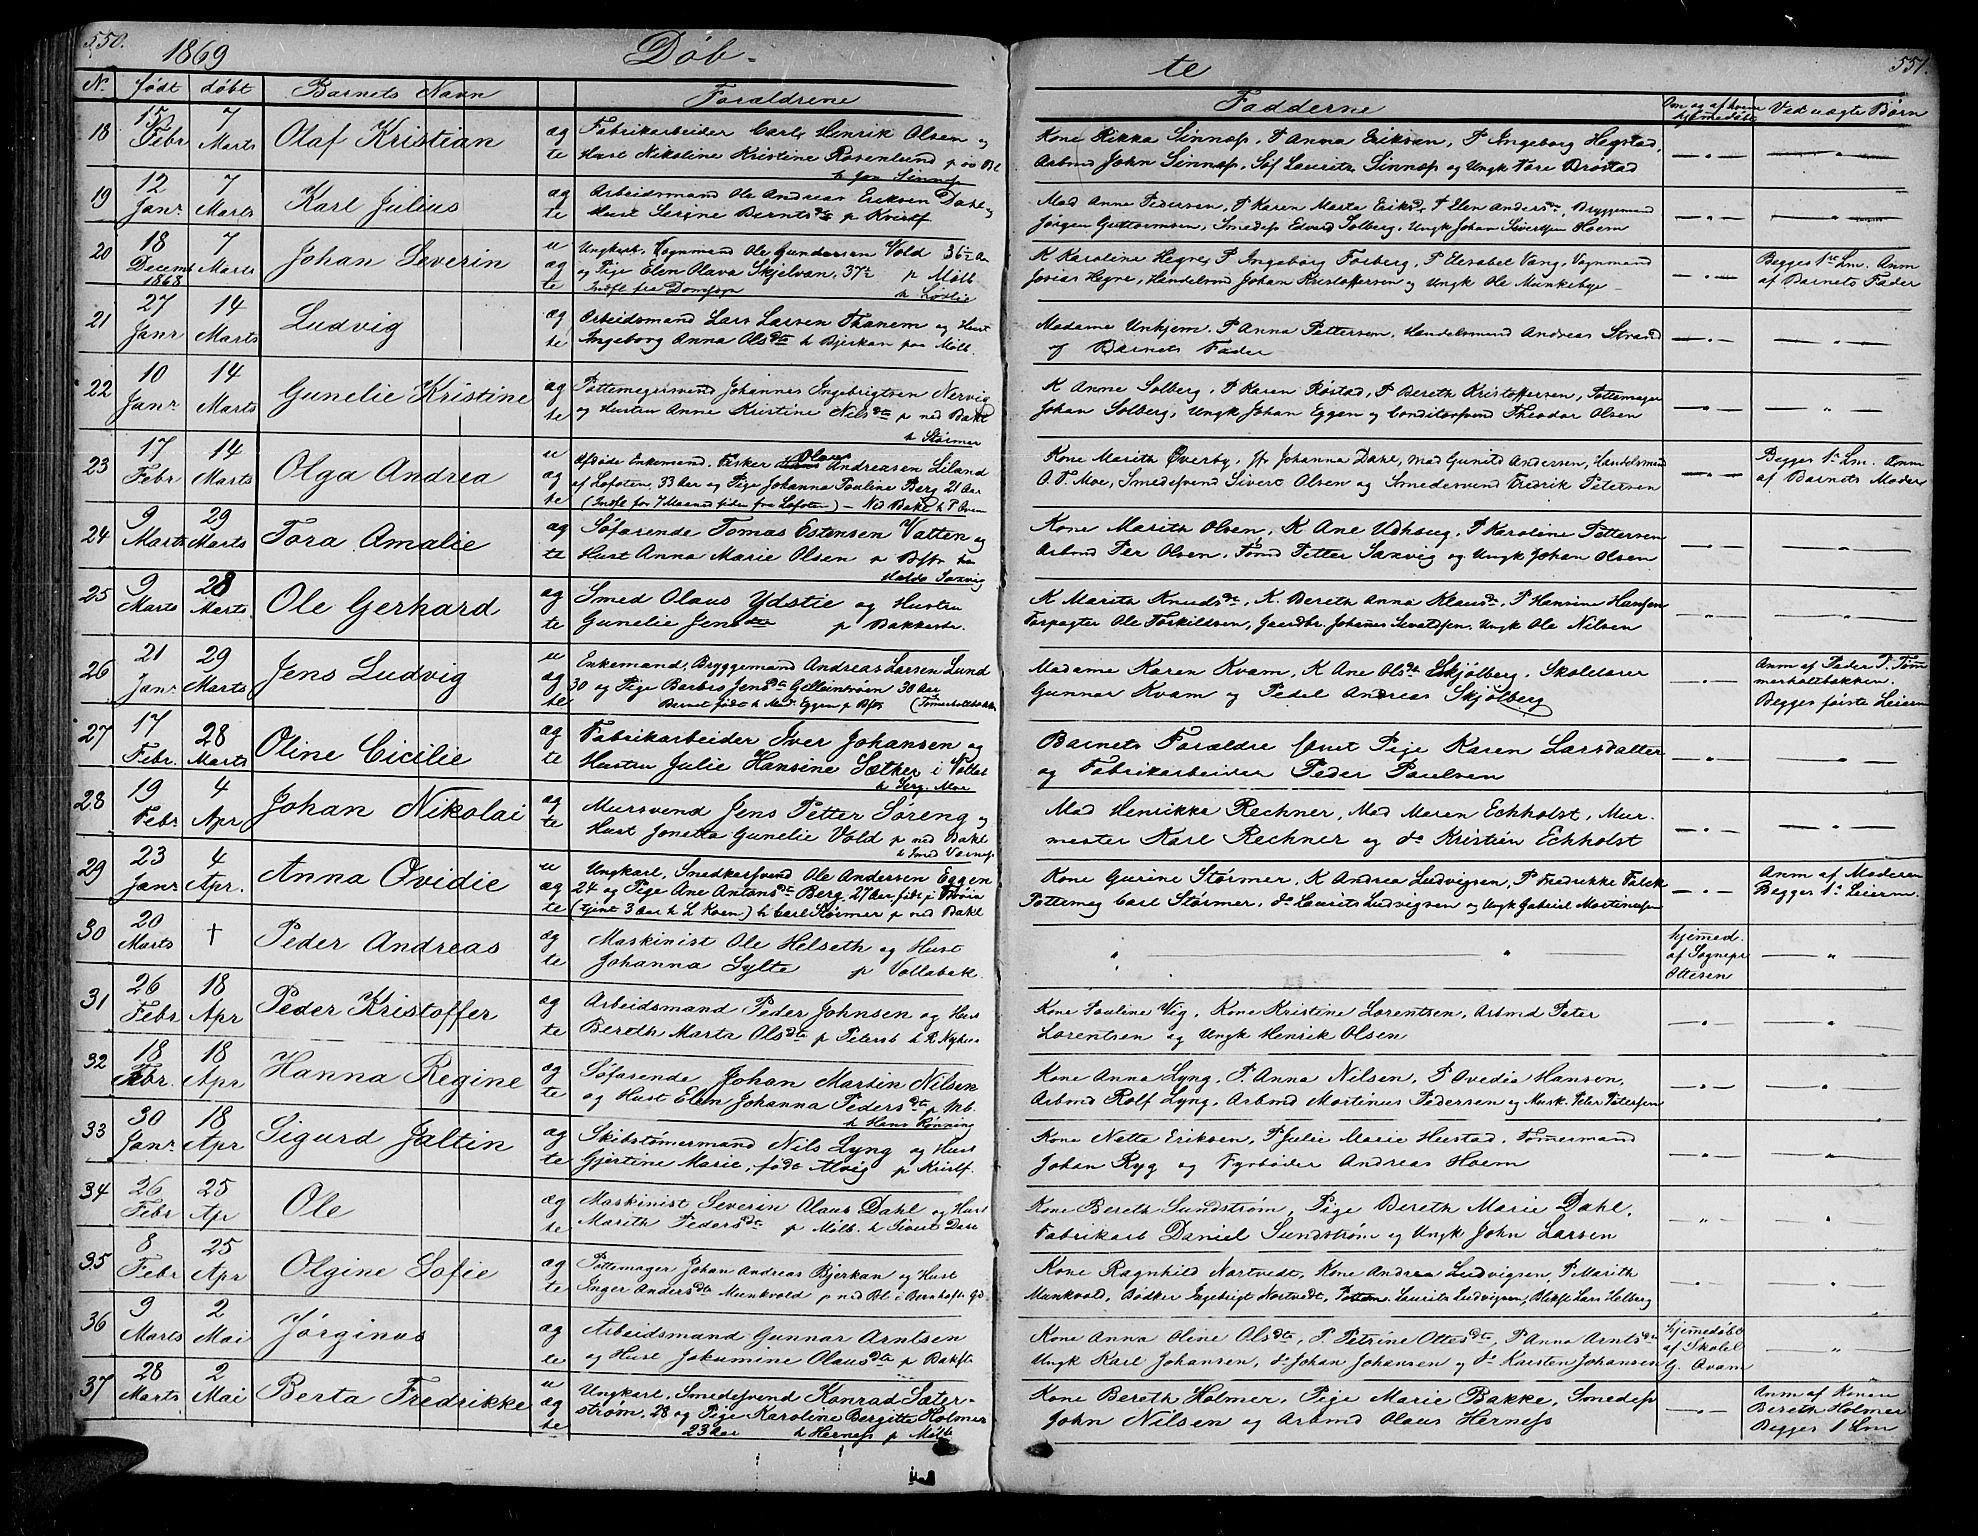 550. 1869 Döb- te 551.
N. født døbt Barnets Navn Forældrene Fadderne Om og af hvem hjemedøbt Ved uægte Børn
18 15 Febr 7 Marts Olaf Kristian æg te Fabrikarbeider Carl Henrik Olsen og
Hust Nikoline Kristine Rosenlund p øv Bl
h Jon Sinnes
Kone Rikka Sinnes, P Anna Eriksen, P Ingeborg Hegstad,
Arbmd John Sinnes, Søf Lauritz Sinnes og Ungk Tore Brøstad
19 12 Janr 7 Marts Karl Julius æg te Arbeidsmand Ole Andreas Eriksen Dahl og
Hust Serene Berntsdtr p Kristf
Mad Anne Pedersen, P Karen Marta Eriksd, P Elen Andersdr, Bryggemand
Jörgen Guttormsen, Smedes Edvard Solberg, Ungk Johan Sivertsen Hoem
20 18 Decemb 1868 7 Marts Johan Severin u æg te Ungkarl, Vognmand Ole Gundersen Vold 36 Aar
og Pige Elen Olava Skjelvan, 37 p Mölb
Indfl fra Domsop h Løvlie
K Karoline Hegre, P Ingeborg Forberg, P Elisabet Vang, Vognmand
Josias Hegre, Handelsmd Johan Kristoffersen og Ungk Ole Munkebye
Begges 1ste Lm. Anm
af Barnets Fader
21 27 Janr 14 Marts Ludvig æg te Arbeidsmand Lars Larsen Thanem og Hust
Ingeborg Anna Olsdtr h Bjerkan paa Mölb.
Madame Unkjem, P Anna Pettersen, Handelsmand Andreas Strand
og Barnets Fader
22 10 Janr 14 Marts Gunelie Kristine æg te Pottemagersvend Johannes Ingebrigtsen Nervig
og Hustru Anne Kristine Nilsdtr p ned Bakl
h Størmer
K Anne Solberg, P Karen Røstad, P Bereth Kristoffersen, Pottemager
Johan Solberg, Ungk Johan Eggen og Conditorsvend Theodor Olsen
23 17 Febr 14 Marts Olga Andrea u æg te Afdøde Enkemand, Fisker Olaus Andreasen Liland
af Lofoten, 33 Aar og Pige Johanna Pauline Berg 21 Aar
(Indfl for 7 Maaned siden fra Lofoten) – Ned Bakl h P Aven
Kone Marith Øverby, Jfr Johanna Dahl, Mad Gunild Andersen, Handelsmd
O. T. Moe, Smedesvend Sivert Olsen og Smedesvend Fredrik Petersen
Begges 1ste Lm. Anm
af Barnets Moder
24 9 Marts 29 Marts Tora Amalie æg te Søfarende Tomas Estensen Vatten og
Hust Anna Marie Olsen p Bftr hos
Halds Saxvig
Kone Marith Olsen, K Ane Udhaug, P Karoline Pettersen
Arbmd Per Olsen, Tömd Petter Saxvig og Ungk Johan Olsen
25 9 Marts 28 Marts Ole Gerhard æg te Smed Olaus Ydstie og Hustru
Gunelie Jensdtr p Bakkestr.
K Marith Knudsdr, K. Bereth Anna Klausdr, P Hansine Hansen
Forpagter Ole Torkildsen, Gaardbr. Johannes Sivaldsen, Ungk Ole Nilsen
26 21 Janr 29 Marts Jens Ludvig u æg te Enkemand, Bryggemand Andreas Larsen Lund
30 og Pige Barbro Jensdtr Gelleinstrøen 30 Aar
Barnet födt h Mad. Eggen p Bftr (Tömerholtbakken
Madame Karen Kvam, K Ane Olsdtr Eskjölberg, Skolelærer
Gunnar Kvam og Pedel Andreas Skjölberg
Anm af Fader P. Töm
merholtbakken.
Begges første Leierm
27 17 Febr. 28 Marts Oline Cicilie æg te Fabrikarbeider Iver Johansen og
Hustru Julie Hansine Sæther i Vollab
h Serg. Moe
Barnets Forældre samt Pige Karen Larsdatter
og Fabrikarbeider Peder Paulsen
28 19 Febr. 4 Apr Johan Nikolai æg te Mursvend Jens Petter Söreng og
Hust Jonetta Gunelie Vold p ned Bakl
h Smed Værnes
Mad Henrikke Rechner, Mad Maren Eckholst, Mur-
mester Karl Rechner og do Kristien Eckholst
29 23 Janr 4 Apr. Anna Ovidie u æg te Ungkarl, Snedkersvend Ole Andersen Eggen
24 og Pige Ane Antonsdtr Berg, 27 Aar födt p Ytterøia
(tjent 3 Aar h L Kvem) h Carl Størmer p ned Bakl
Kone Gurine Størmer, K Andrea Ludvigsen, P Fredrikke Falck
Pottemag Carl Størmer, do Laurits Ludvigsen og Ungk Gabriel Martinusen
Anm af Moderen
Begges 1ste Leierm.
30 20 Marts † Peder Andreas æg te Maskinist Ole Helseth og Hust
Johanna Sylte p Vollabak.
hjemmed.
af Sognepr
Ottesen
31 26 Febr 18 Apr Peder Kristoffer æg te Arbeidsmand Peder Johnsen og Hust
Bereth Marta Olsdtr p Petersb h R. Nyhus
Kone Pauline Vig, Kone Kristine Lorentsen, Arbmd Peter
Lorentsen og Ungk Henrik Olsen
32 18 Febr. 18 Apr Hanna Regine æg te Søfarende Johan Martin Nilsen
og Hust Elen Johanna Pedersdtr p Mb.
h Hans Rönning
Kone Anna Lyng, P. Anna Nilsen, P Ovedia Hansen,
Arbmd Rolf Lyng, Arbmd Martinus Pedersen og Mask. Peter Pettersen
33 30 Janr 18 Apr Sigurd Jaltin æg te Skibstømermand Nils Lyng og Hust
Gjertine Marie, født Alvig p Kristf.
Kone Netta Eriksen, P Julie Marie Hustad, Tømermand
Johan Ryg og Fyrbøder Andreas Hoem
34 26 Febr 25 Apr Ole æg te Maskinist Severin Olaus Dahl og Hust
Marith Pedersdtr p Mölb. h Sivert Dahl
Kone Bereth Sundstrøm, Pige Bereth Marie Dahl,
Fabrikarb Daniel Sundstrøm og Ungk John Larsen
35 8 Febr 25 Apr Olgine Sofie æg te Pottemager Johan Andreas Bjerkan og Hust
Inger Andersdtr Munkvold p ned Bl i Bernhoft Gd
Kone Ragnhild Nortvedt, Kone Andrea Ludvigsen, P Marith
Munkvold, Bødker Ingebrigt Nortvedt, Pottem. Laurits Ludvigsen, Bliksl Lars Helberg
36 9 Marts 2 Mai Jörginus æg te Arbeidsmand Gunnar Arntsen
og Hust Jakumine Olausdtr p Bakft
Kone Anna Oline Olsdtr, P. Petrine Ottesdtr, P Anna Arntsdtr
Ungk Karl Johansen, do Johan Johansen og do Karsten Johansen
hjemedøbt
af Skolel
G. Qvam
37 28 Marts 2 Mai Berta Fredrikke u æg te Ungkarl, Smedesvend Konrad Sater-
ström, 28 og Pige Karoline Bergitte Holmer
23 Aar h Herness p Mölb
Kone Bereth Holmer, Pige Marie Bakke, Smedes
John Nilsen og Arbmd Olaus Herness
Anm af Konen
Bereth Holmer
Begges 1 Lm